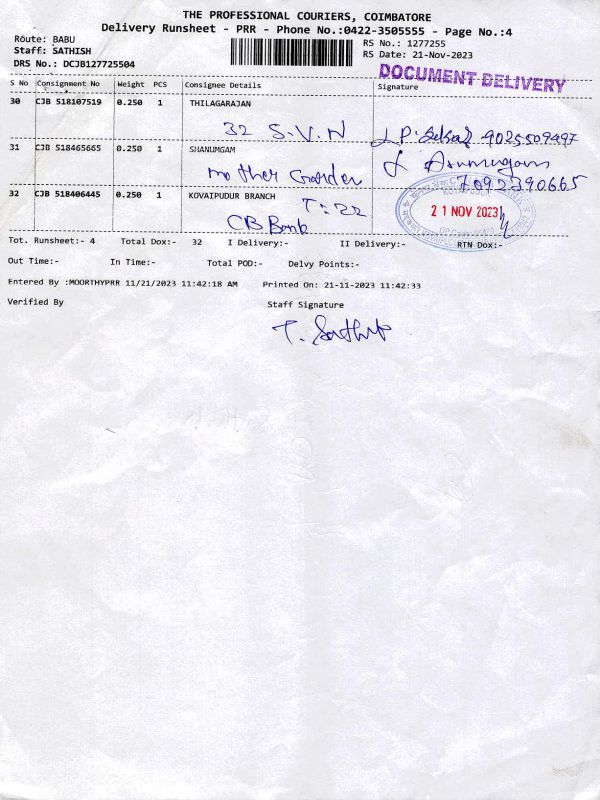 THE PROFESSIONAL COURIERS, COIMBATORE
Delivery Runsheet - PRR - Phone No.:0422-3505555 - Page No.:4
Route: BABU
Staff: SATHISH
DRS No.: DCJB127725504
RS No.: 1277255
RS Date: 21-Nov-2023
DOCUMENT DELIVERY
S No Consignment No Weight PCS Consignee Details Signature
30 CJB 518107519 0.250 1 THILAGARAJAN
32 S.V.N 9025509497
31 CJB 518465665 0.250 1 SHANUMGAM
mother Garden Arumugam
7092390665
32 CJB 518406445 0.250 1 KOVAIPUDUR BRANCH
T:22
CB Bank
21 NOV 2023
Tot. Runsheet:- 4 Total Dox:- 32 I Delivery:- II Delivery:- RTN Dox:-
Out Time:- In Time:- Total POD:- Delvy Points:-
Entered By :MOORTHYPRR 11/21/2023 11:42:18 AM Printed On: 21-11-2023 11:42:33
Verified By Staff Signature
T. Sathish